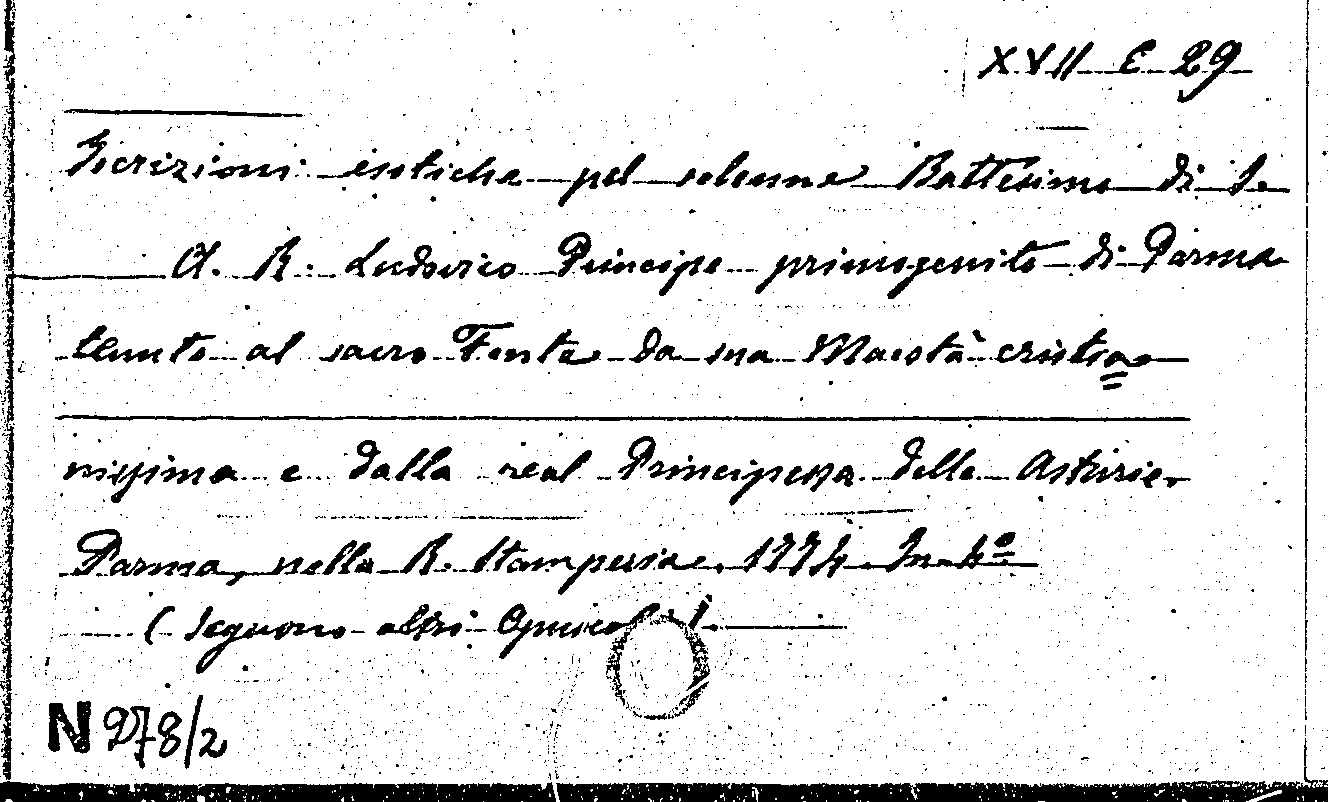 XVII E 29
Iscrizioni esotiche pel solenne Battesimo di S.
A. R. Ludovico Principe primogenito di Parma
tenuto al sacro Fonte da sua Maestà cristia=
nissima e dalla real Principessa delle Asturie.
Parma, nella R. Stamperia. 1774. In-4º
( Seguono altri Opuscoli ).
N 278/2